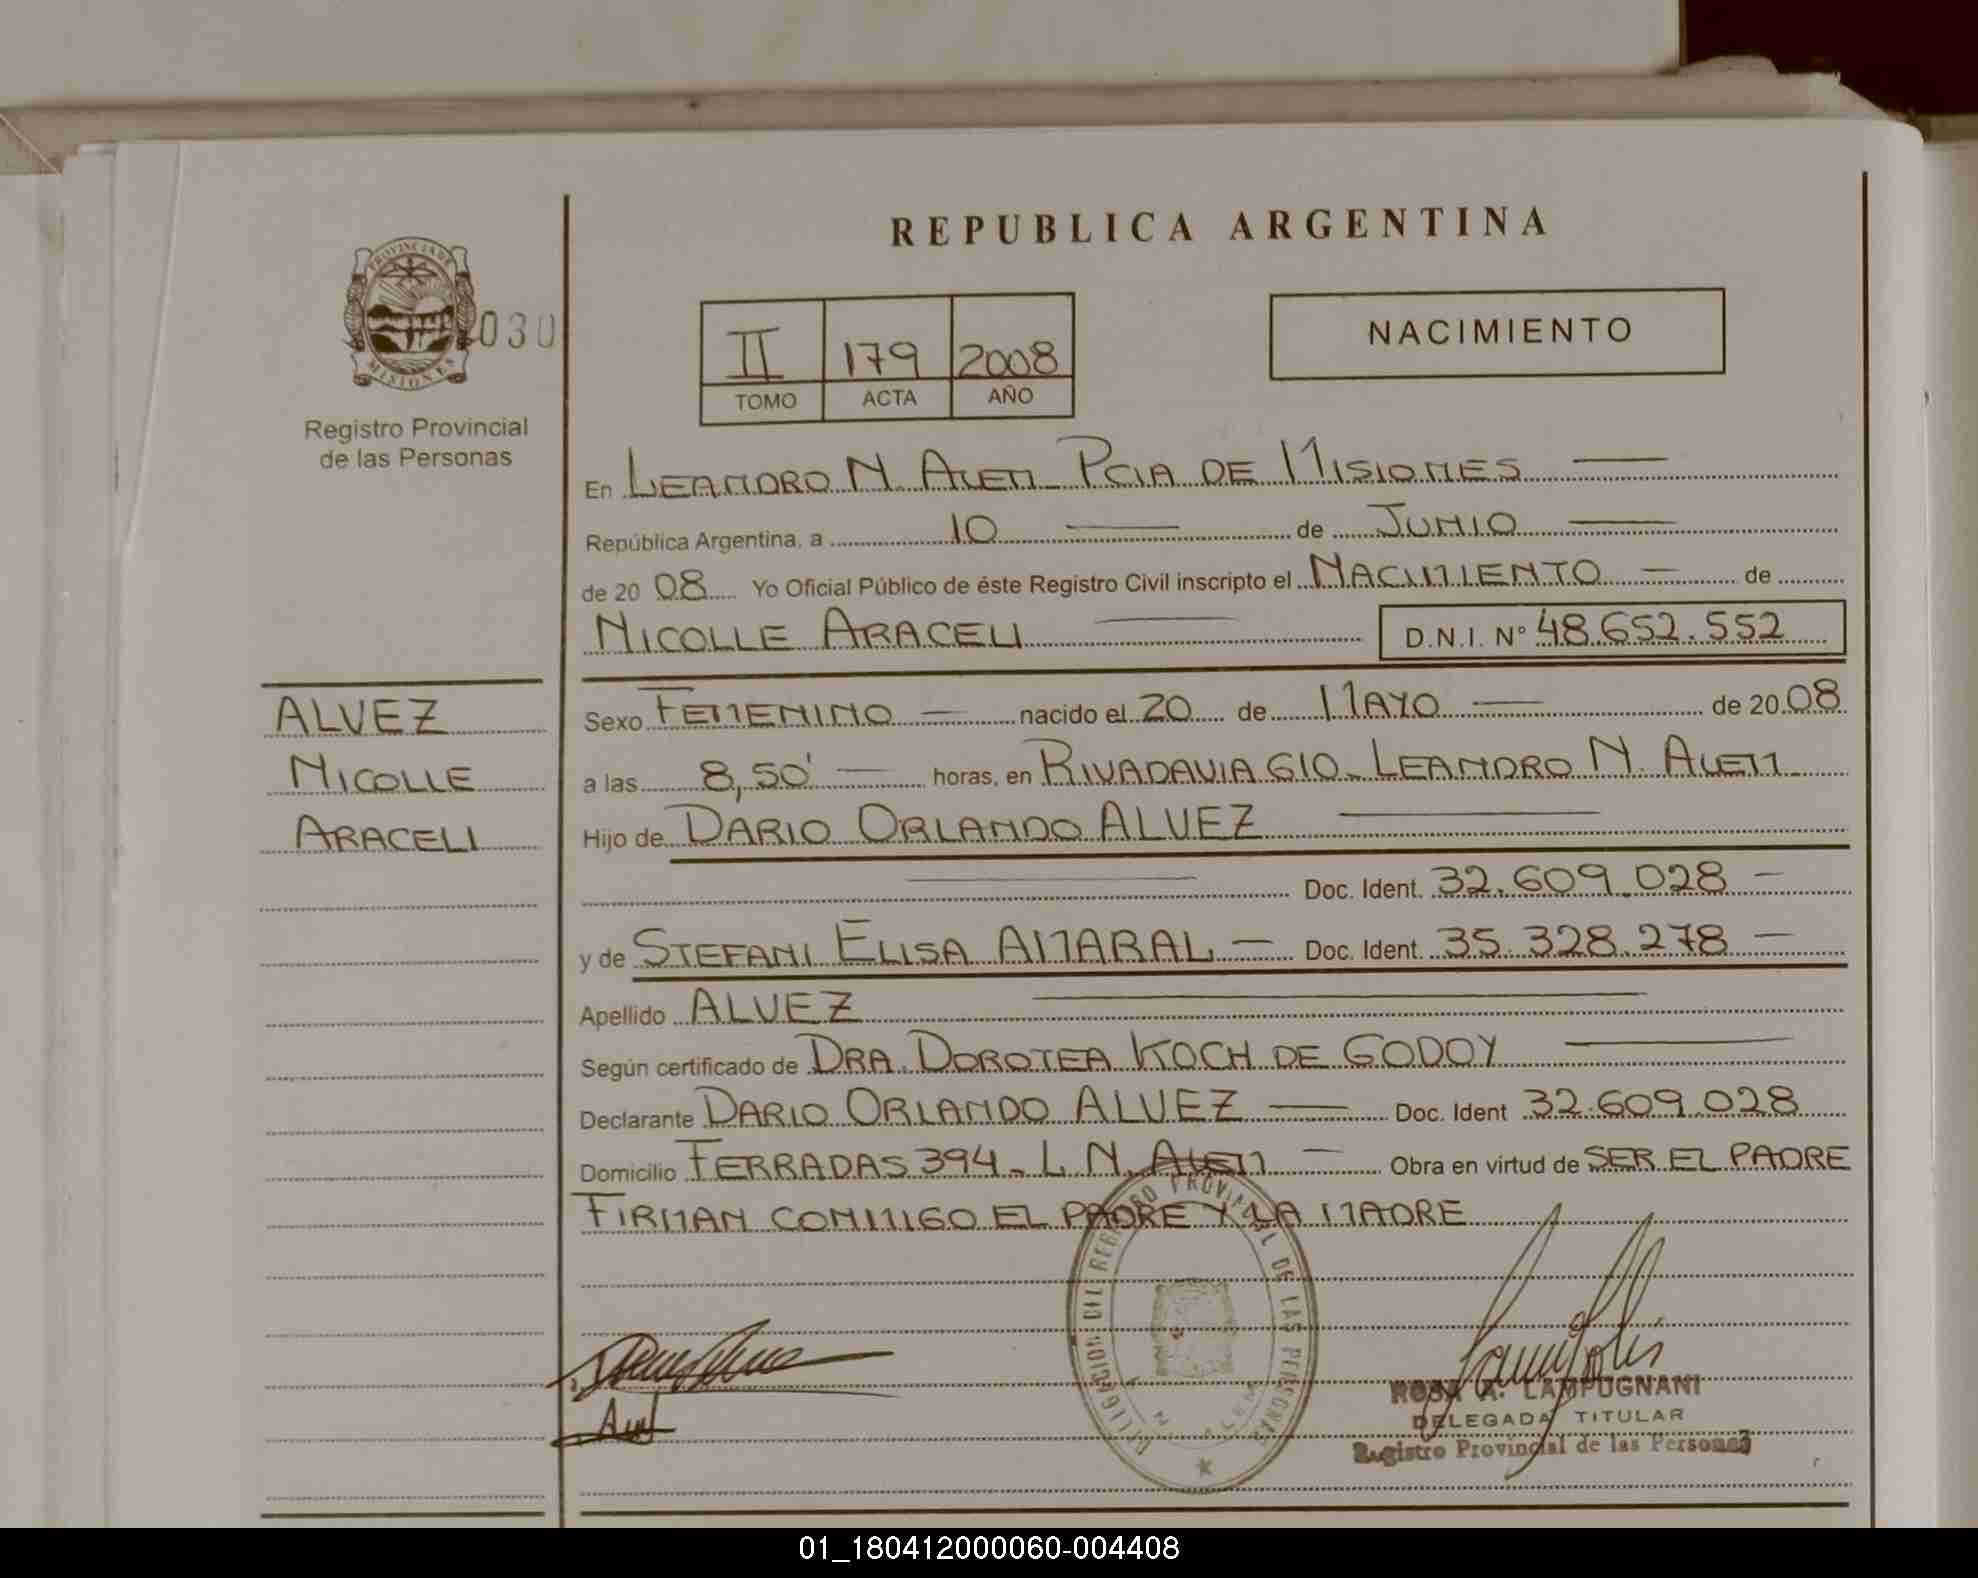 REPUBLICA ARGENTINA
PROVINCIA DE
MISIONES
030
Registro Provincial
de las Personas
II 179 2008
TOMO ACTA AÑO
NACIMIENTO
En LEANDRO N. ALEM PCIA DE MISIONES
República Argentina, a 10 de JUNIO
de 20 08 Yo Oficial Público de éste Registro Civil inscripto el NACIMIENTO de
NICOLLE ARACELI D.N.I. Nº 48.652.552
ALVEZ
NICOLLE
ARACELI
Sexo FEMENINO nacido el 20 de MAYO de 20 08
a las 8,50' horas, en RIVADAVIA 610 - LEANDRO N. ALEM
Hijo de DARIO ORLANDO ALVEZ
Doc. Ident. 32.609.028
y de STEFANI ELISA AMARAL Doc. Ident. 35.328.278
Apellido ALVEZ
Según certificado de DRA. DOROTEA KOCH DE GODOY
Declarante DARIO ORLANDO ALVEZ Doc. Ident 32.609.028
Domicilio FERRADAS 394 - L.N. ALEM Obra en virtud de SER EL PADRE
FIRMAN CONMIGO EL PADRE Y LA MADRE
DELEGACION DEL REGISTRO PROVINCIAL DE LAS PERSONAS
N. ALEM
ROSA A. LAMPUGNANI
DELEGADA TITULAR
Registro Provincial de las Personas
01_180412000060-004408